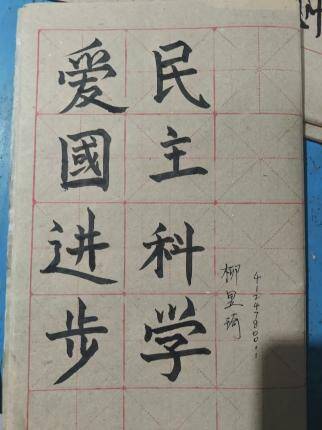 爱國进步
民主科学
柳里琦